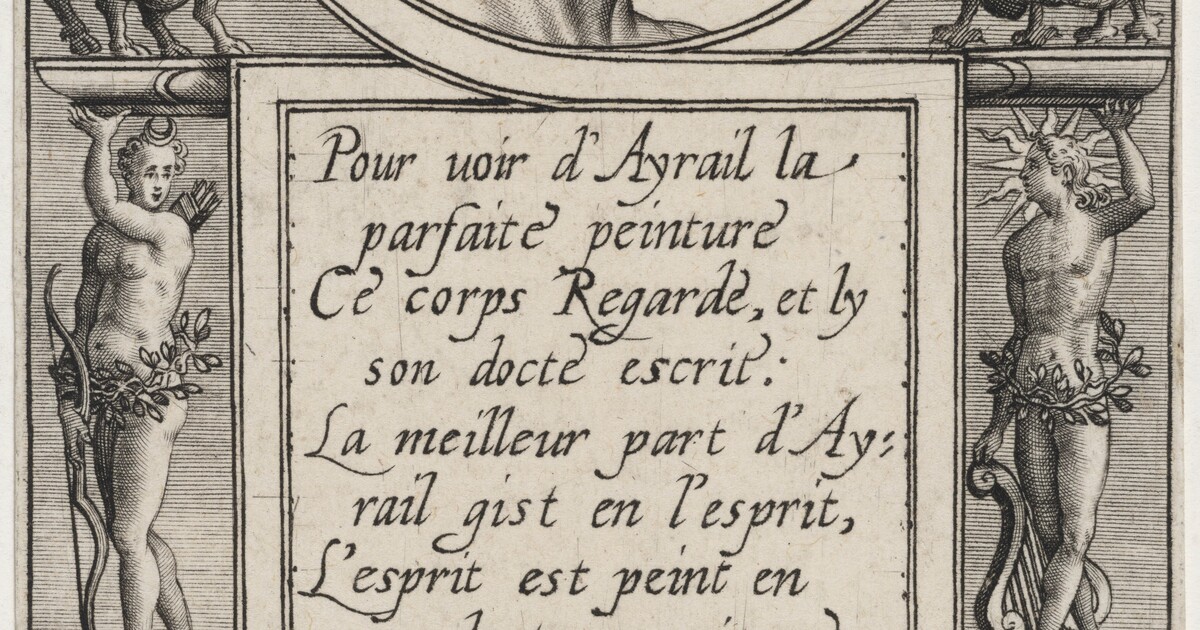 Pour uoir d'Ayrail la
parfaite peinture
Ce corps Regarde, et ly
son docte escrit:
La meilleur part d'Ay:
rail gist en l'esprit,
L'esprit est peint en